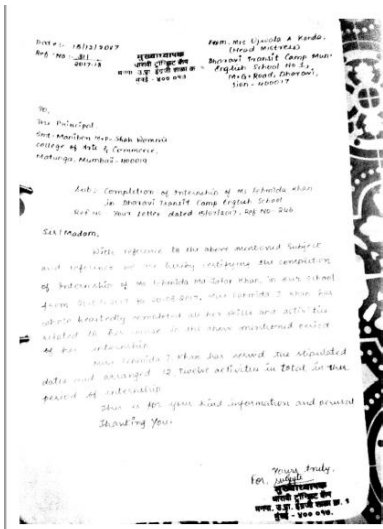 Date :- 18/12/2017
Ref - No :- 31
2017-18
मुख्याध्यापक
धारावी ट्रान्झिट कॅम्प
मुंबई - ४०० ०१७
From, Mrs Ujwala A
(Head Mistress)
Dharavi Transit Camp Mun.
English School No 1,
M.G. Road, Dharavi,
Sion - 400017
To,
The Principal
Smt. Maniben M.P. Shah Women's
College of Arts & Commerce.
Matunga, Mumbai - 400019
Sub : Completion of Internship of Ms Fehmida Khan
in Dharavi Transit Camp English School
Your Letter dated Ref No: 246
Sir/Madam,
With reference to the above mentioned Subject
and reference we hereby certifying the completion
of Internship of Ms Fehmida Khan, in our School
from to Fehmida J Khan has
whole heartedly completed all her skills and activities
related to her in the above mentioned period
of her internship.
Miss Fehmida J Khan has served the stipulated
dates and arranged 12 Twelve activities in total in this
period of internship
This is for your kind information and perusal
Thanking You.
Yours truly,
For,
मुख्याध्यापक
धारावी ट्रान्झिट कॅम्प
मनपा. उ.प्रा. इंग्रजी शाळा क्र. १
मुंबई - ४०० ०१७.